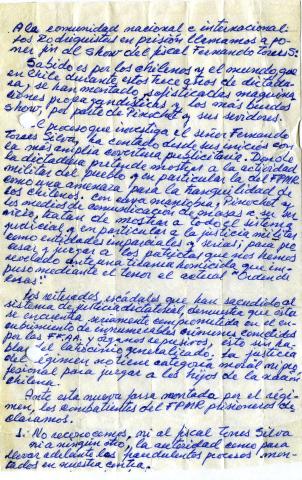 A la comunidad nacional e internacional:
los Rodriguistas en prisión llamamos a po-
ner fin al show del fiscal Fernando Torres S:
Sabido es por los chilenos y el mundo que
en Chile durante estos trece años de dictadu-
ra, se han montado sofisticadas maquina-
ciones propagandísticas y los más burdos
show, por parte de Pinochet y sus servidores.
El proceso que investiga el señor Fernando
Torres Silva, ha contado desde sus inicios con
la más amplia cobertura publicitaria. Donde
la dictadura pretende mostrar a la actividad
militar del pueblo y en particular la del FPMR
como una amenaza para la tranquilidad de
los chilenos. Con esta maniobra, Pinochet y
los medios de comunicación de masas a su ser-
vicio, tratan de mostrar a todo el sistema
judicial, y en particular a la justicia militar
como entidades imparciales y serias; para
y juzgar a los patriotas que nos hemos
revelado ante una tiranía homicida que im-
puso mediante el terror el actual "Orden de
cosas".
Los reiterados escándalos que han sacudido al
sistema de justicia dictatorial, demuestra que esta
se encuentra seriamente comprometida en el en-
cubrimiento de innumerables crímenes cometidos
por las FF.AA. y órganos represivos, esto sin ha-
blar de la corrupción generalizada. La justicia
del régimen, no tiene categoría moral ni pro-
fesional para juzgar a los hijos de la nación
chilena.
Ante esta nueva farsa montada por el régi-
men, los combatientes del FPMR prisioneros de-
claramos.
1.- No reconocemos, ni al fiscal Torres Silva
ni a ningún otro, la autoridad como para
llevar adelante los fraudulentos procesos mon-
tados en nuestra contra.